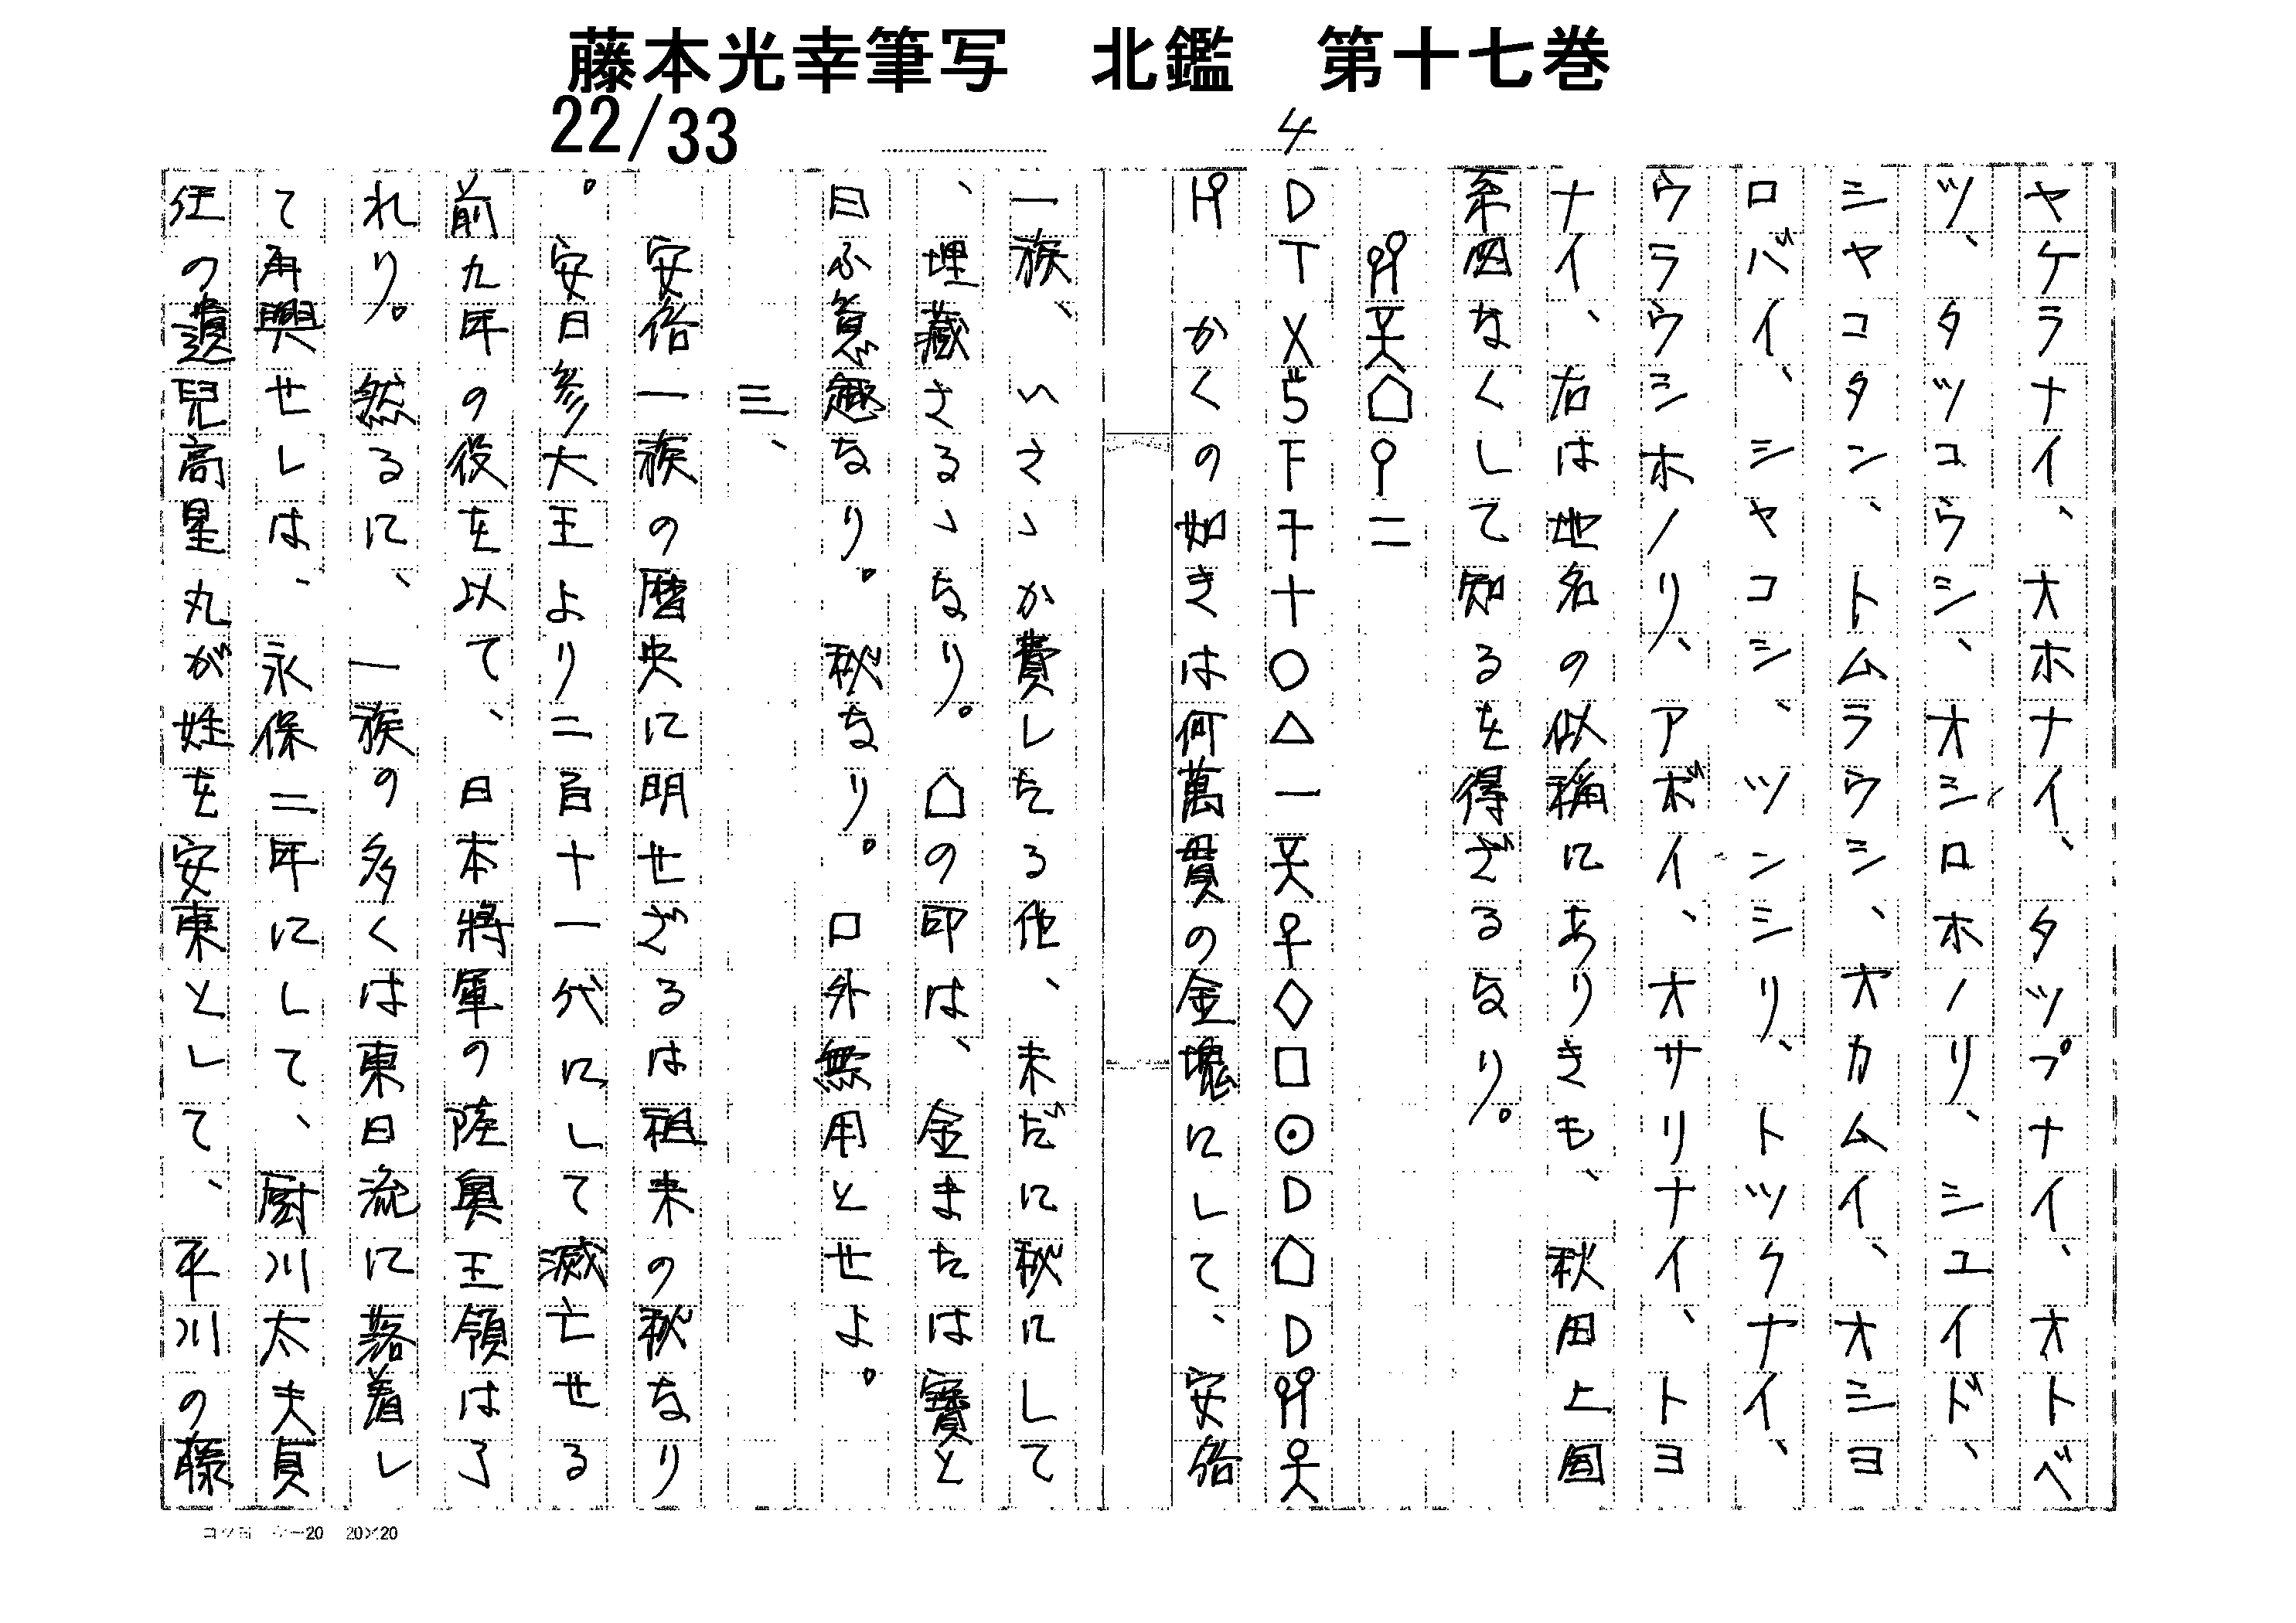 藤本光幸筆写　北鑑　第十七巻
22/33
4
ヤケラナイ、オホナイ、タツプナイ、オトベ
ツ、タツコウシ、オシロホノリ、シユイド、
シヤコタン、トムラウシ、オカムイ、オシヨ
ロバイ、シヤコシ、ツンシリ、トツクナイ、
ウラウシホノリ、アボイ、オサリナイ、トヨ
ナイ、右は地名の似稱にありきも、秋田上国
系図なくして知るを得ざるなり。
⌂二
DTX5F干十○△一◇□⊙D⌂D
かくの如きは何萬貫の金塊にして、安倍
一族、いさゝか費したる他、未だに秘にして
、埋蔵さるゝなり。⌂の印は、金または寶と
曰ふ意趣なり。秘なり。口外無用とせよ。
三、
安倍一族の暦央に明せざるは祖来の秘なり
。安日彦大王より二百十一代にして滅亡せる
前九年の役を以て、日本將軍の陸奥王領は了
れり。然るに、一族の多くは東日流に落着し
て再興せしは、永保二年にして、厨川太夫貞
任の遺兒高星丸が姓を安東として、平川の藤
コクヨ　ケ−20　20×20